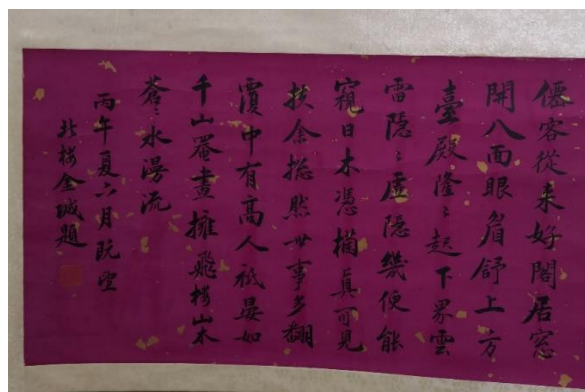 僊客從来好閣居窓
開八面眼眉舒上方
臺殿隆〻起下界雲
雷隱〻虛隱幾便能
窺日木憑楯真可見
扶余揔然世事多翻
覆中有高人祗晏如
千山罨畫擁飛樓山木
蒼〻水漫流
丙午夏六月既望
北樓金城題